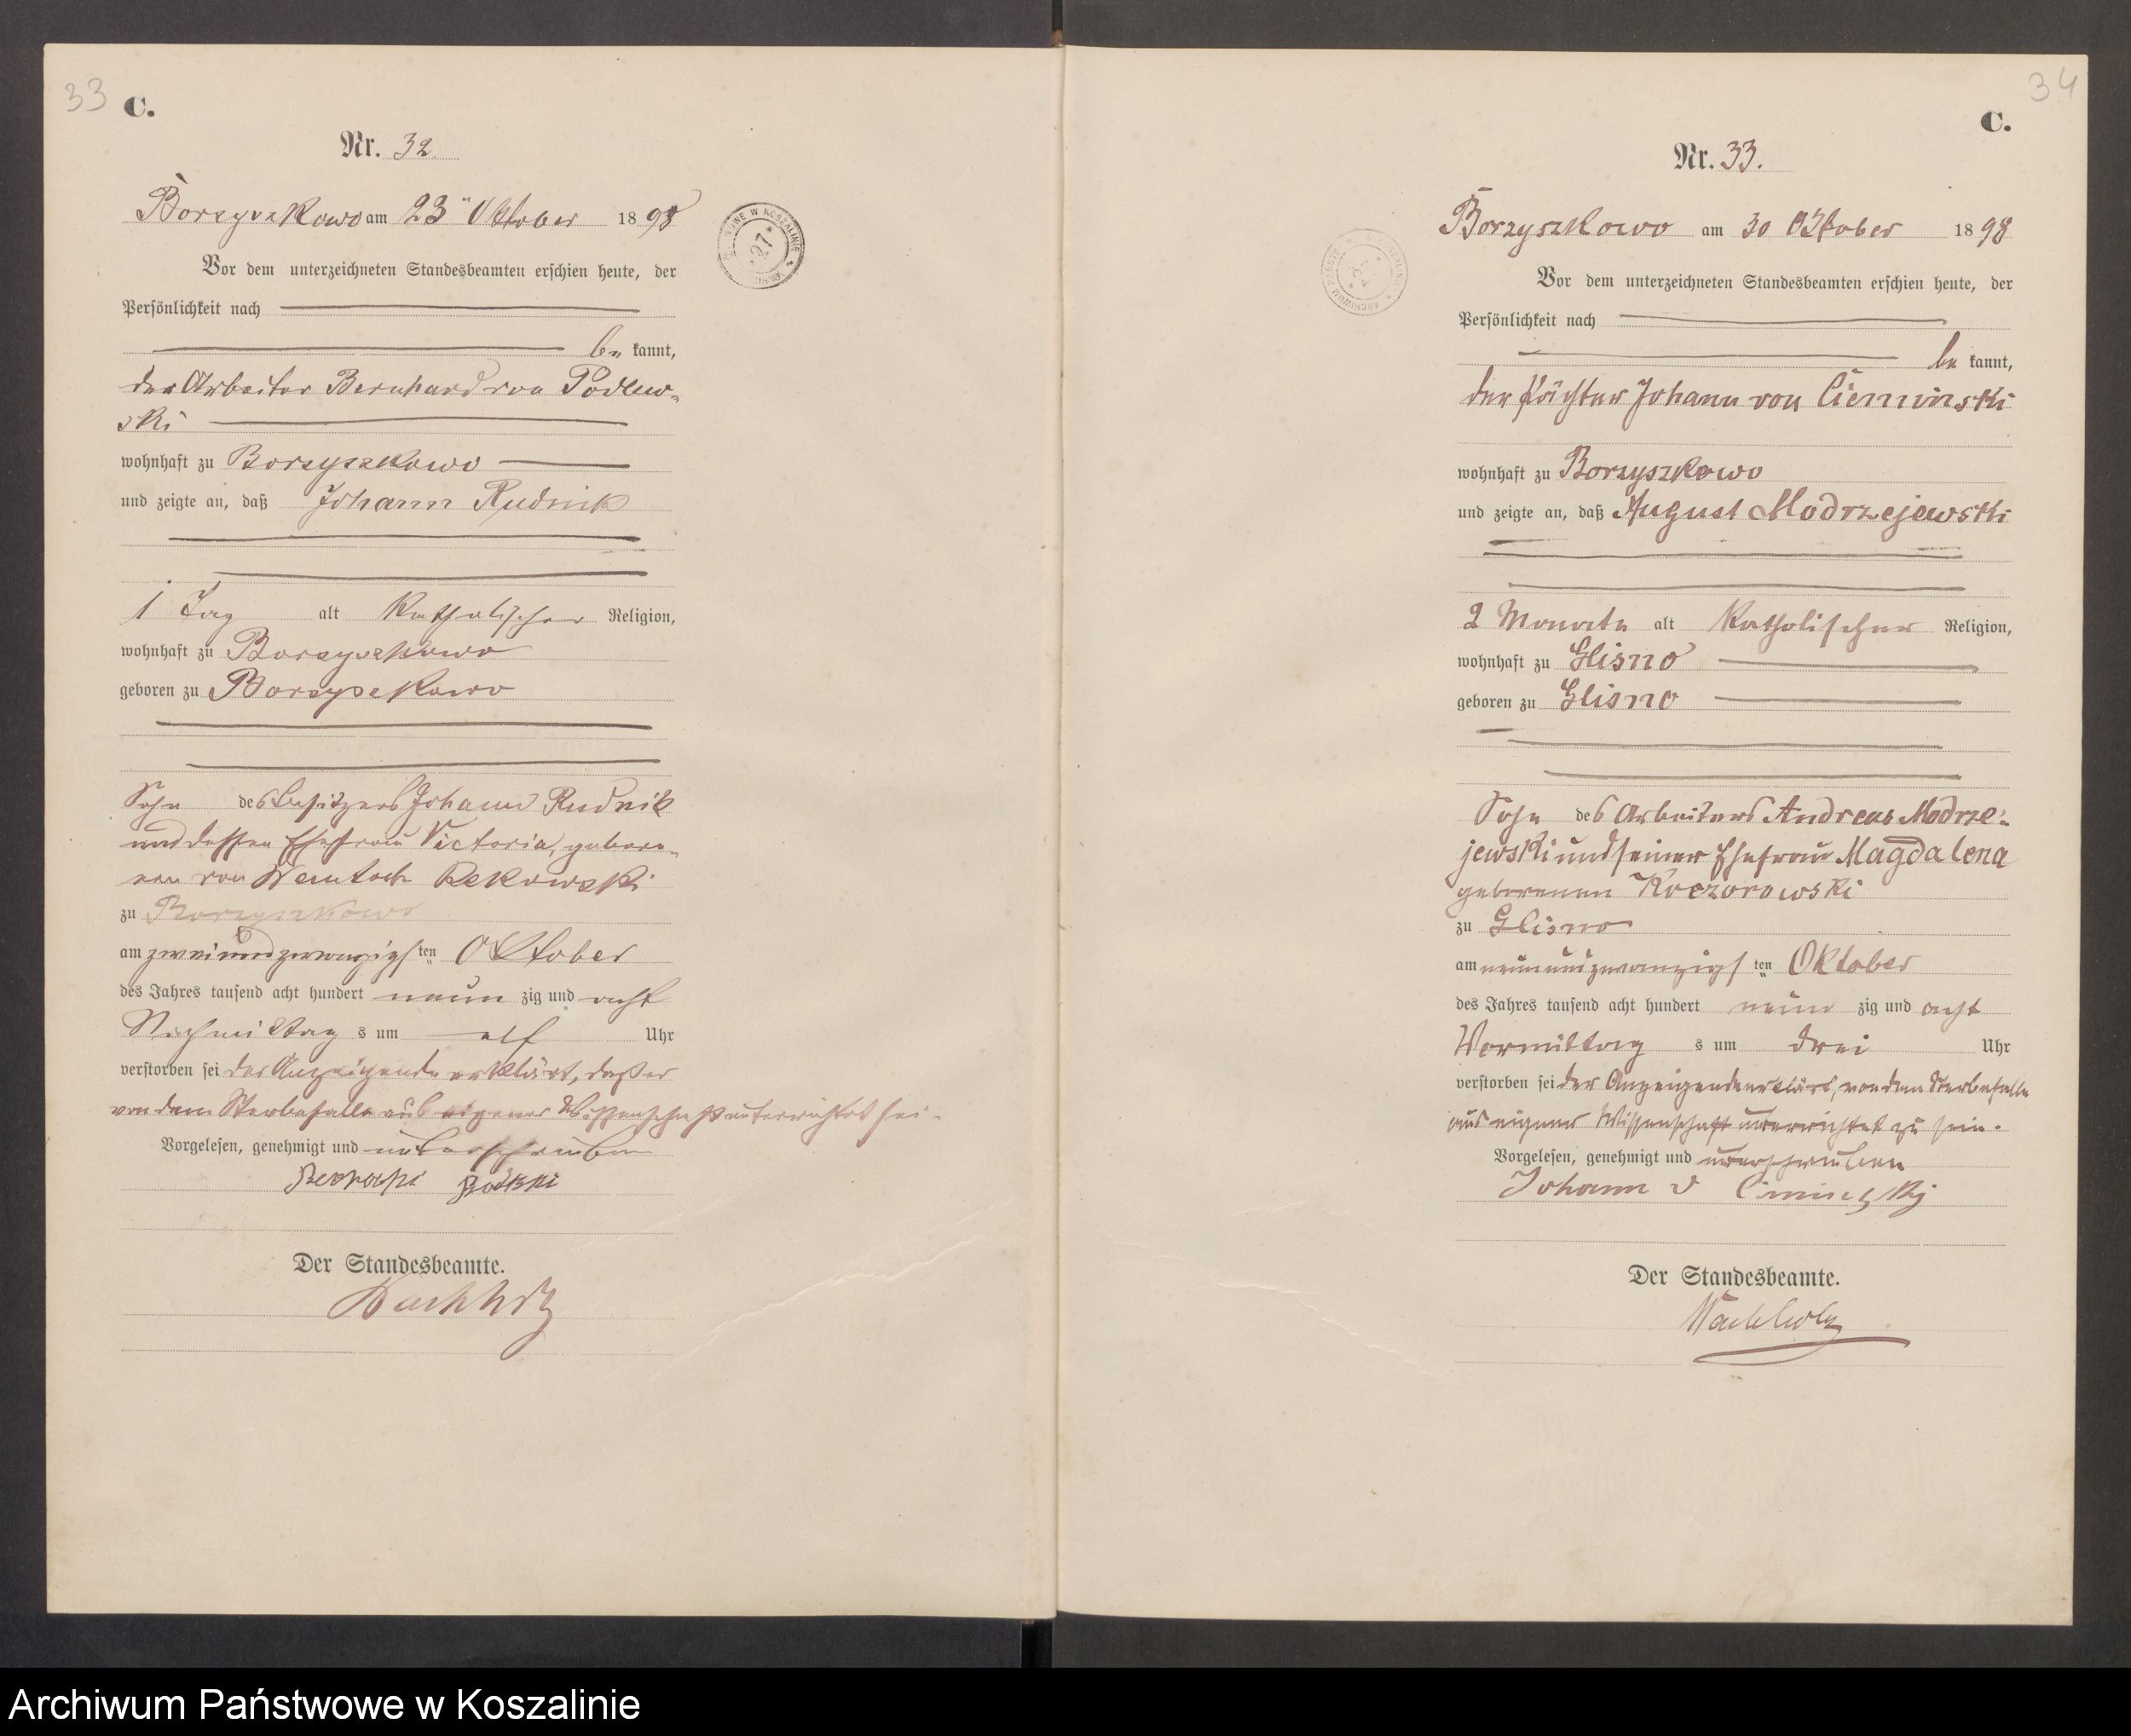 33
C.
Nr. 32
Borzyszkowo am 23 ten Oktober 1898
Vor dem unterzeichneten Standesbeamten erschien heute, der
Persönlichkeit nach
be kannt,
der Arbeiter Bernhard von Podlew-
ski
wohnhaft zu Borzyszkowo
und zeigte an, daß Johann Rudnik
1 Tag alt katholischer Religion,
wohnhaft zu Borzyszkowo
geboren zu Borzyszkowo
Sohn des Besitzers Johann Rudnik
und dessen Ehefrau Victoria, gebore-
nen von Rekowski
zu Borzyszkowo
am zweiundzwanzigsten Oktober
des Jahres tausend acht hundert neun zig und acht
Nachmittag s um elf Uhr
verstorben sei der Anzeigende erklärt, daß er
von dem Sterbefalle aus eigener Wissenschaft unterrichtet sei.
Vorgelesen, genehmigt und unterschrieben
Der Standesbeamte.
Wachholz
ARCHIWUM PAŃSTWOWE W KOSZALINIE
27
34
C.
Nr. 33.
Borzyszkowo am 30 Oktober 1898
Vor dem unterzeichneten Standesbeamten erschien heute, der
Persönlichkeit nach
be kannt,
der Pächter Johann von Cieminski
wohnhaft zu Borzyszkowo
und zeigte an, daß August Modrzejewski
2 Monate alt katholischer Religion,
wohnhaft zu Glisno
geboren zu Glisno
Sohn des Arbeiters Andreas Modrze-
jewski und seiner Ehefrau Magdalena
geborenen Koczorowski
zu Glisno
am neunundzwanzigsten Oktober
des Jahres tausend acht hundert neun zig und acht
Vormittag s um drei Uhr
verstorben sei der Anzeigende erklärt, von dem Sterbefalle
aus eigener Wissenschaft unterrichtet zu sein.
Vorgelesen, genehmigt und unterschrieben
Johann v
Der Standesbeamte.
Wachholz
Archiwum Państwowe w Koszalinie